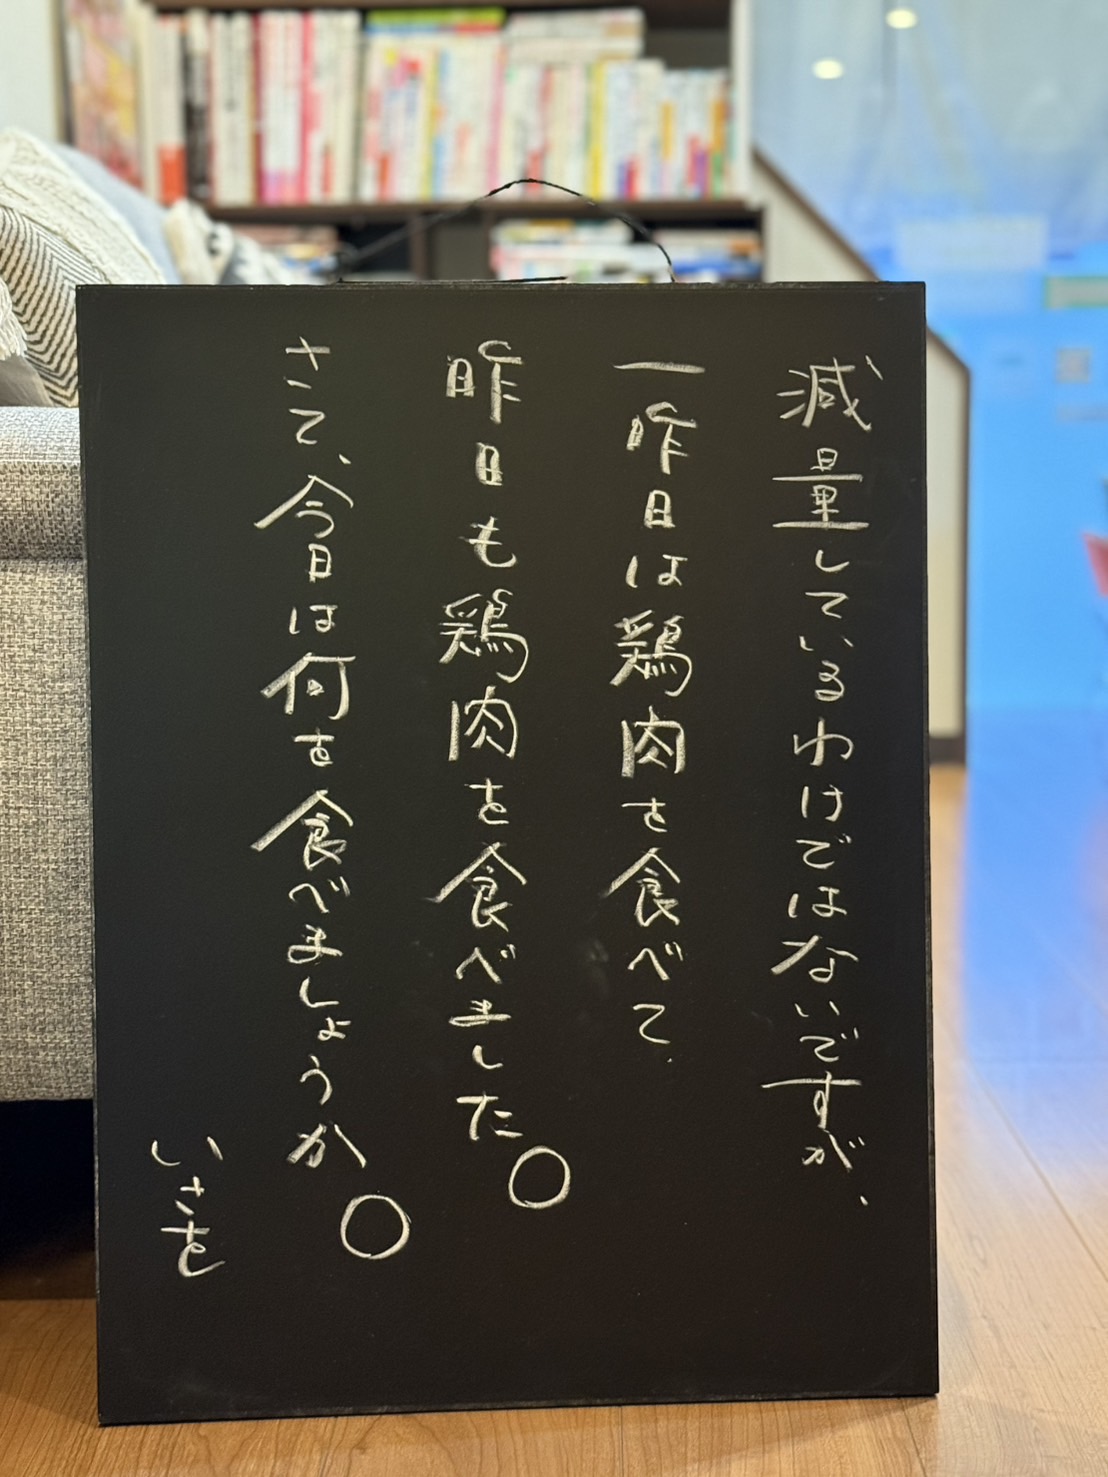 減量しているわけではないですが、
一昨日は鶏肉を食べて、
昨日も鶏肉を食べました。
さて、今日は何を食べましょうか。
いさを